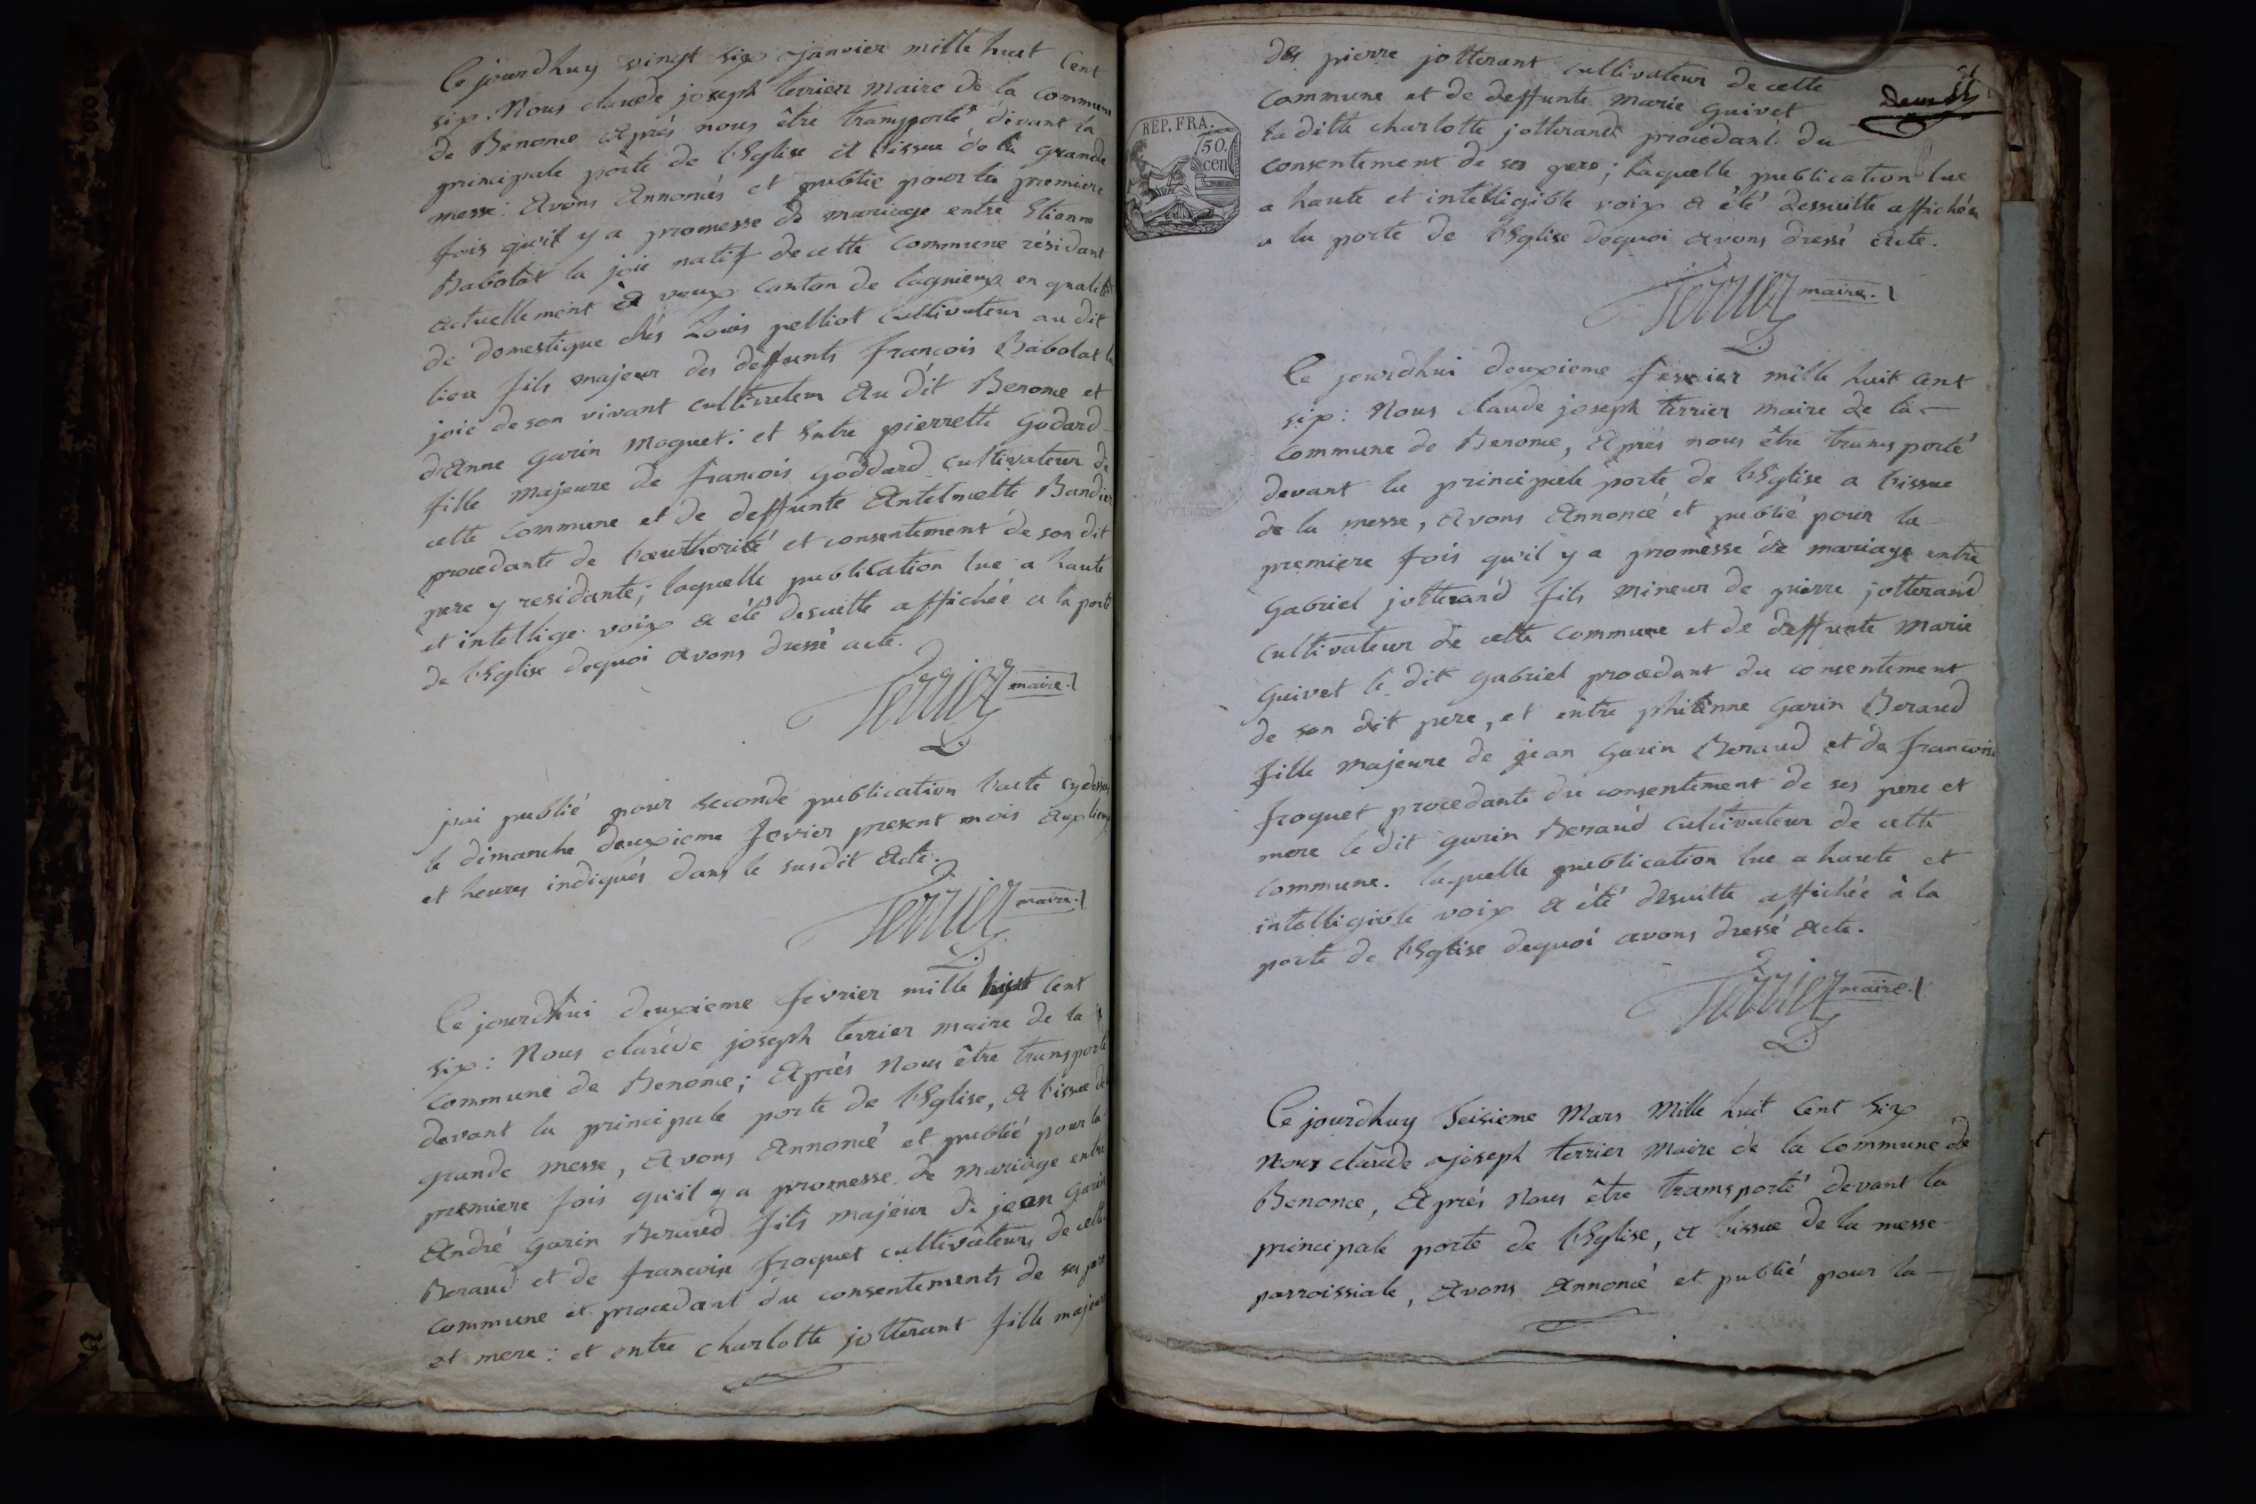 Ce jourdhuy vingt six janvier mille huit Cent
six. Nous claude joseph terrier maire de la commune
de Benonce Aprés nous être transporté devant la
principale porte de l'Eglise A l'issue de la grande
messe: Avons Annoncés et publié pour la premiere
fois qu'il y a promesse de mariage entre Etienne
Babolat la joie natif de cette Commune résidant
actuellement à vaux canton de lagnieux en qualité
de domestique chés Louis pelliot cultivateur au dit
lieu fils majeur des deffunts françois Babolat la
joie de son vivant cultivateur Au dit Benonce et
d'Anne Garin Moguet: et Entre pierrette Godard
fille majeure de francois Goddard cultivateur de
cette commune et de deffunte Antelmette Bandier
procedante de l'authorité et consentement de son dit
pere y residante; laquelle publication lue a haute
et intellige voix a été desuitte affichée a la porte
de l'Eglise dequoi avons dressé acte.
Terrier maire.
jai publié pour seconde publication l'acte cydessus
le dimanche deuxieme fevrier present mois aux lieux
et heures indiqués dans le susdit Acte.
Terrier maire.
Ce jourd'hui deuxieme fevrier mille huit Cent
six: Nous claude joseph terrier maire de la
commune de Benonce; Aprés Nous être transporté
devant la principale porte de l'Eglise, A l'issue de
grande messe, Avons Annoncé et publié pour la
premiere fois qu'il y a promesse de mariage entre
André Garin Beraud fils majeur de jean Garin
Beraud et de francoise froquet cultivateurs de cette
commune et procedant du consentements de ses pere
et mere: et entre charlotte jotterant fille majeure
des pierre jotterant cultivateur de cette
commune et de deffunte Marie Guivet
la ditte charlotte jotterand procedant du
consentement de son pere; laquelle publication lue
a haute et intelligible voix a été dessuitte affichée
a la porte de l'Eglise dequoi avons dressé acte.
REP. FRA.
50.
cen
Terrier maire.
Ce jourdhui deuxieme fevrier mille huit cent
six: Nous claude joseph terrier maire de la
commune de Benonce, Aprés nous être transporté
devant la principale porte de l'Eglise a l'issue
de la messe, Avons Annoncé et publié pour la
premiere fois qu'il y a promesse de mariage entre
Gabriel jotterand fils mineur de pierre jotterand
cultivateur de cette commune et de deffunte Marie
Guivet le dit Gabriel procedant du consentement
de son dit pere, et entre philinne Garin Beraud
fille majeure de jean Garin Beraud et de francoise
froquet procedante du consentement de ses pere et
mere le dit Garin Beraud cultivateur de cette
commune. laquelle publication lue a haute et
intelligible voix a été desuitte affichée à la
porte de l'Eglise dequoi avons dressé Acte.
Terrier maire.
Ce jourdhuy Seisieme Mars Mille huit Cent Six
Nous claude joseph terrier Maire de la Commune de
Benonce, Aprés Nous être transporté devant la
principale porte de l'Eglise, A l'issue de la messe
parroissiale, Avons Annoncé et publié pour la